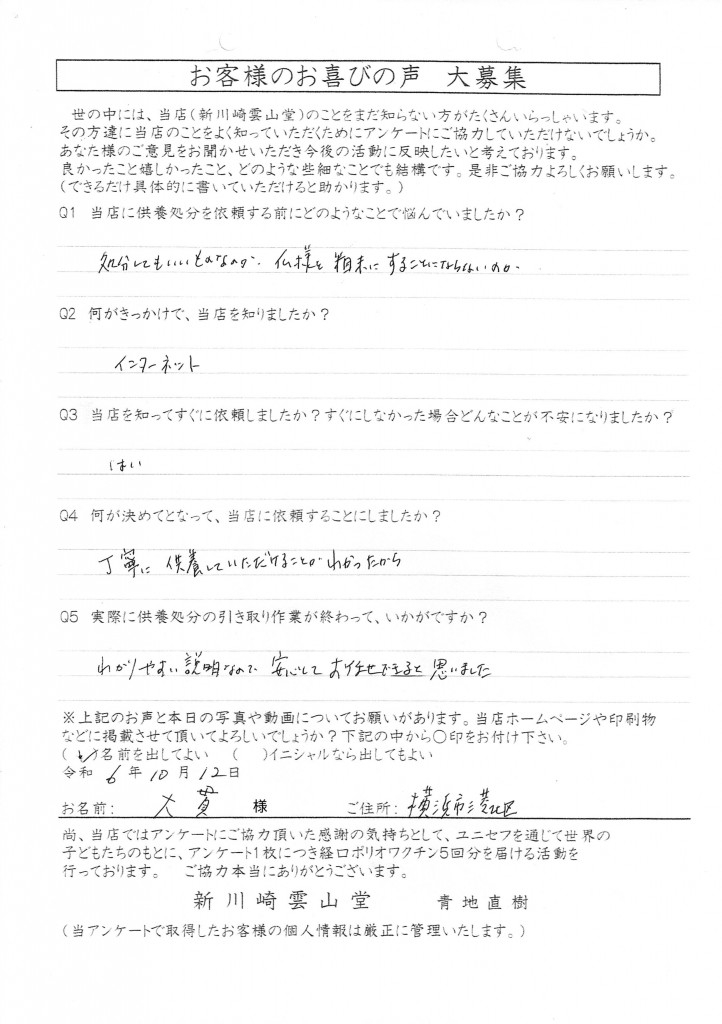 お客様のお喜びの声　大募集
世の中には、当店(新川崎雲山堂)のことをまだ知らない方がたくさんいらっしゃいます。
その方達に当店のことをよく知っていただくためにアンケートにご協力していただけないでしょうか。
あなた様のご意見をお聞かせいただき今後の活動に反映したいと考えております。
良かったこと嬉しかったこと、どのような些細なことでも結構です。是非ご協力よろしくお願いします。
(できるだけ具体的に書いていただけると助かります。)
Q1 当店に供養処分を依頼する前にどのようなことで悩んでいましたか?
処分してもいいものなのか、仏様を粗末にすることにならないのか、
Q2 何がきっかけで、当店を知りましたか?
インターネット
Q3 当店を知ってすぐに依頼しましたか?すぐにしなかった場合どんなことが不安になりましたか?
はい
Q4 何が決めてとなって、当店に依頼することにしましたか?
丁寧に供養していただけることがわかったから
Q5 実際に供養処分の引き取り作業が終わって、いかがですか?
わかりやすい説明なので安心してお任せできると思いました
※上記のお声と本日の写真や動画についてお願いがあります。当店ホームページや印刷物
などに掲載させて頂いてよろしいでしょうか?下記の中から〇印をお付け下さい。
( ✓ )名前を出してよい ( )イニシャルなら出してもよい
令和 6 年 10 月 12 日
お名前: 大貫 様 ご住所: 横浜市港北区
尚、当店ではアンケートにご協力頂いた感謝の気持ちとして、ユニセフを通じて世界の
子どもたちのもとに、アンケート1枚につき経口ポリオワクチン5回分を届ける活動を
行っております。 ご協力本当にありがとうございます。
新川崎雲山堂 青地直樹
(当アンケートで取得したお客様の個人情報は厳正に管理いたします。)